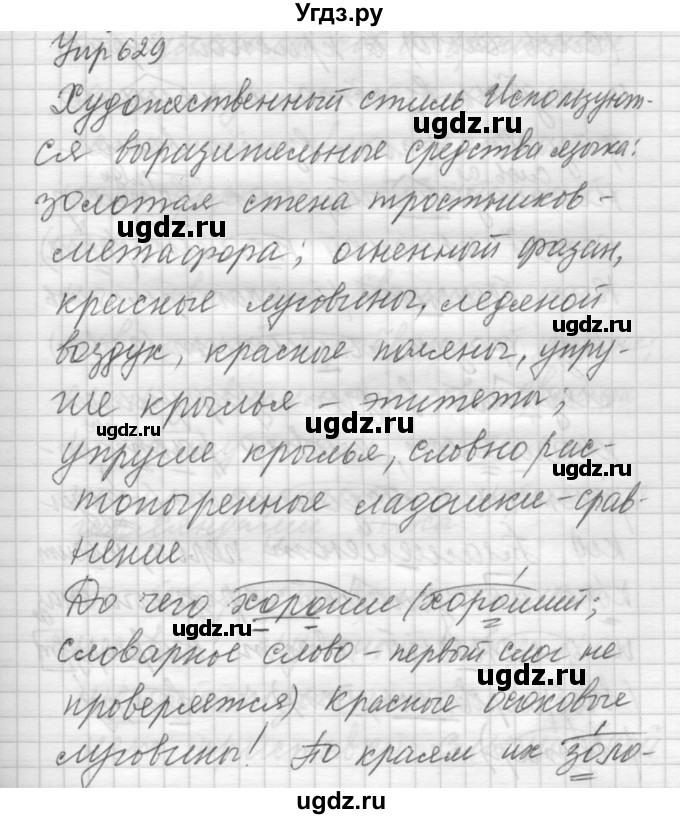 Угдз.ру
Упр 629
Художественный стиль. Используют-
ugdz.ru
ся выразительные средства языка:
золотая стена тростников -
ugdz.ru
метафора; огненный фазан,
красные луговины, ледяной
ugdz.ru
воздух, красные поляны, упру-
гие крылья - эпитеты;
ugdz.ru
упругие крылья, словно рас-
ugdz.ru
топыренные ладошки - срав-
нение.
До чего хороши (хороший;
ugdz.ru
словарное слово - первый слог не
ugdz.ru
проверяется) красные осоковые
луговины! По краям их золо-
ugdz.ru
ugdz.ru